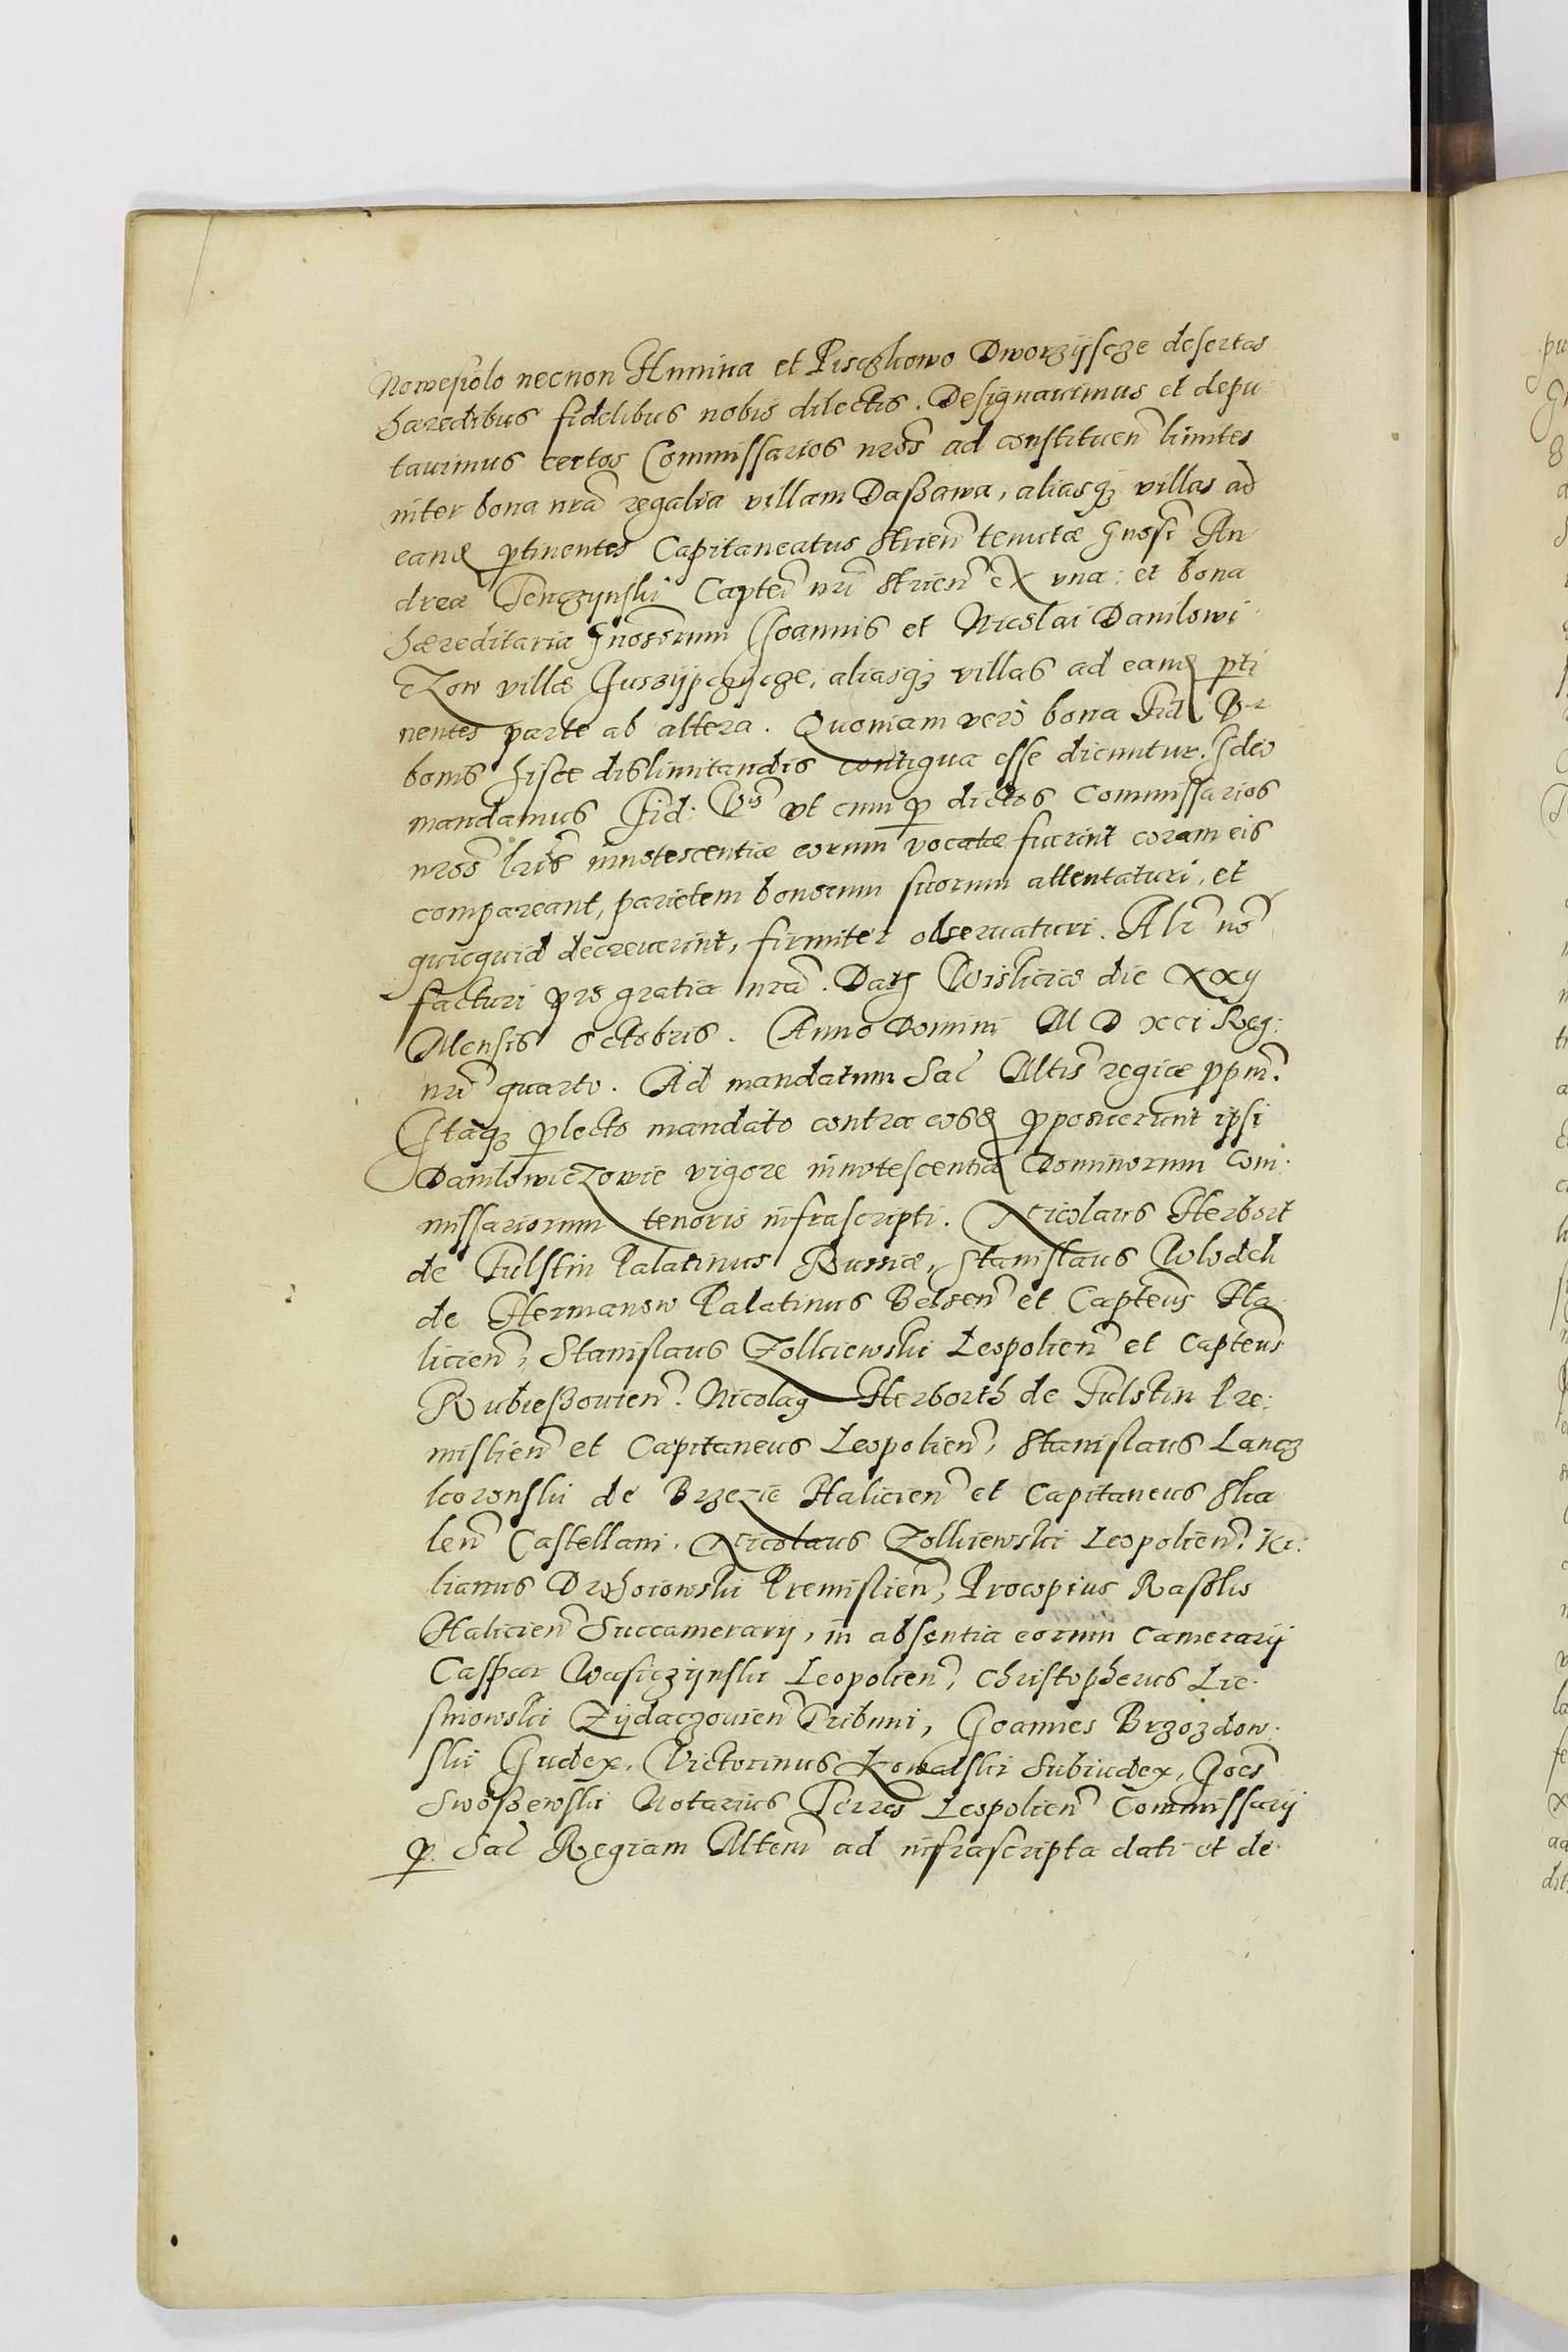 Nowesiolo necnon Hnmina et Pisczkowo Dworzÿscze desertas
hæredibus fidelibus nobis dilectis. Designauimus et depu-
tauimus certos Commissarios nros ad constituen limites
inter bona nra regalia villam Daßawa, aliasq villas ad
eand ptinentes Capitaneatus Strien tenutæ Gnosi An
dreæ Tenczÿnski Captei nri Strien ex vna: et bona
hæreditaria Gnosorum Joannis et Nicolai Danilowi
czow villæ aliasq villas ad eand pti
nentes parte ab altera. Quoniam vero bona Fid V-r
bonis hisce dislimitandis contigua esse dicuntur. Ideo
mandamus Fid: Vris vt cum p dictos Commissarios
nros lris innotescentiæ eorum vocatæ fuerint coram eis
compareant, parietem bonorum suorum attentaturi, et
quicquid decreuerint, firmiter obseruaturi. Alr no
facturi pro gratia nra. Dat Wisliciæ die xxij
Mensis Octobris. Anno Domini M D xci Reg:
nri quarto. Ad mandatum Sac Mtis regiæ ppm.
Itaq plecto mandato contra eosd pposuerunt ipsi
Daniłowiczowie vigore innotescentiæ Dominorum Com:
missariorum tenoris infrascripti. Nicolaus Herbort
de Fulstin Palatinus Russiæ, Stanislaus Wlodek
de Hermanow Palatinus Belzen et Capteus Ha
licien, Stanislaus Zolkiewski Leopolien et Capteus
Rubießouien. Nicolaq Herborth de Fulstin Pre:
mislien et Capitaneus Leopolien, Stanislaus Lancz
koronski de Brzezie Halicien et Capitaneus Ska
len Castellani. Nicolaus Zolkiewski Leopolien. Ki:
lianus Drohoiowski Premislien, Procopius
Halicien Succamerarij, in absentia eorum Camerarij
Caspar Wasiczÿnski Leopolien, Christopherus Lie-
sniowski Zÿdaczouien Tribuni, Joannes Brzozdow-
ski Judex, Victorinus Kowalski Subiudex, Joes
Swoßewski Notarius Terræ Leopolien Commissarij
p Sac Regiam Mtem ad infrascripta dati et de-